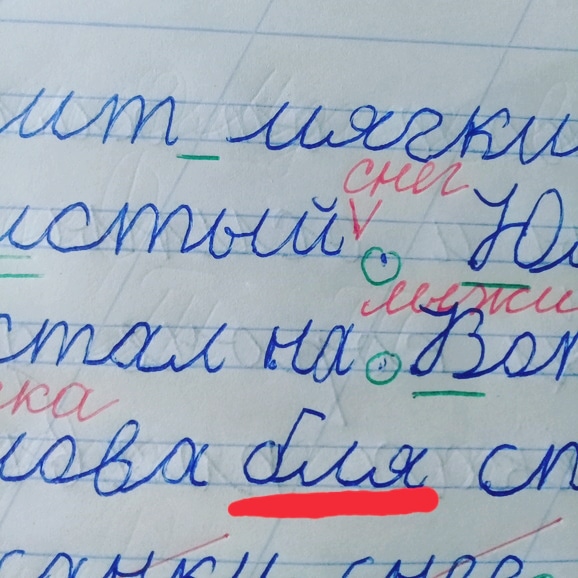 ит мягки
снег
истый. Ю
лыжи
стал на. Вот
ска
нова бля сп
санки снег